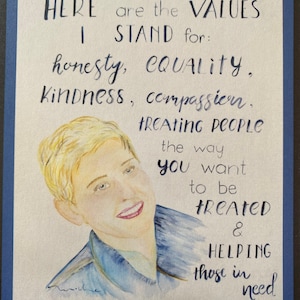 HERE are the VALUES
I STAND for:
honesty, EQUALITY,
KINDNESS, compassion,
TREATING PEOPLE
the way
YOU want
to be
TREATED
&
HELPING
those in
need